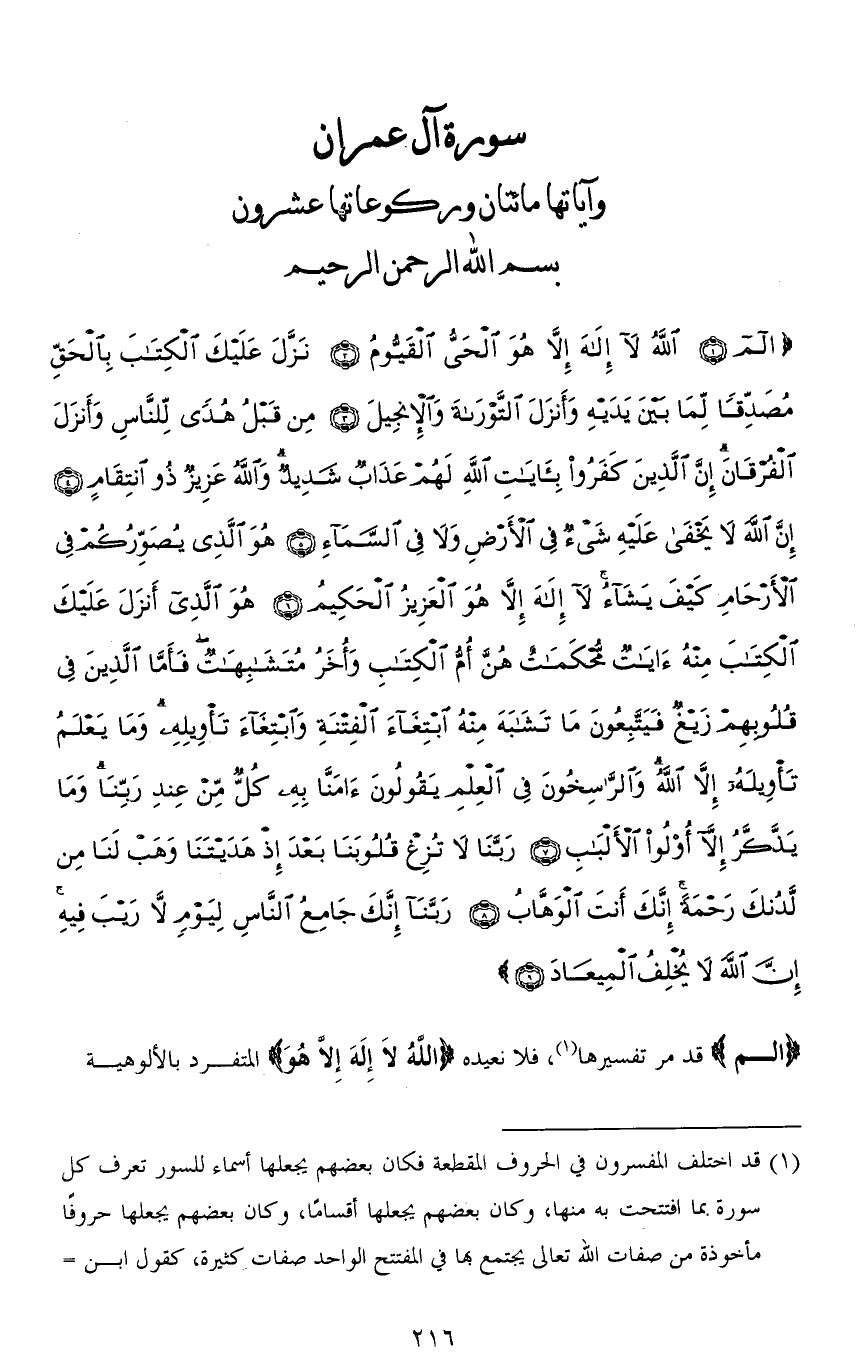 سورة آل عمران
وآياتها مائتان وركوعاتها عشرون
بسم الله الرحمن الرحيم
﴿ الٓمٓ ۝١ ٱللَّهُ لَآ إِلَٰهَ إِلَّا هُوَ ٱلْحَىُّ ٱلْقَيُّومُ ۝٢ نَزَّلَ عَلَيْكَ ٱلْكِتَٰبَ بِٱلْحَقِّ
مُصَدِّقًا لِّمَا بَيْنَ يَدَيْهِ وَأَنزَلَ ٱلتَّوْرَىٰةَ وَٱلْإِنجِيلَ ۝٣ مِن قَبْلُ هُدًى لِّلنَّاسِ وَأَنزَلَ
ٱلْفُرْقَانَ ۗ إِنَّ ٱلَّذِينَ كَفَرُوا۟ بِـَٔايَٰتِ ٱللَّهِ لَهُمْ عَذَابٌ شَدِيدٌ ۗ وَٱللَّهُ عَزِيزٌ ذُو ٱنتِقَامٍ ۝٤
إِنَّ ٱللَّهَ لَا يَخْفَىٰ عَلَيْهِ شَىْءٌ فِى ٱلْأَرْضِ وَلَا فِى ٱلسَّمَآءِ ۝٥ هُوَ ٱلَّذِى يُصَوِّرُكُمْ فِى
ٱلْأَرْحَامِ كَيْفَ يَشَآءُ ۚ لَآ إِلَٰهَ إِلَّا هُوَ ٱلْعَزِيزُ ٱلْحَكِيمُ ۝٦ هُوَ ٱلَّذِىٓ أَنزَلَ عَلَيْكَ
ٱلْكِتَٰبَ مِنْهُ ءَايَٰتٌ مُّحْكَمَٰتٌ هُنَّ أُمُّ ٱلْكِتَٰبِ وَأُخَرُ مُتَشَٰبِهَٰتٌ ۖ فَأَمَّا ٱلَّذِينَ فِى
قُلُوبِهِمْ زَيْغٌ فَيَتَّبِعُونَ مَا تَشَٰبَهَ مِنْهُ ٱبْتِغَآءَ ٱلْفِتْنَةِ وَٱبْتِغَآءَ تَأْوِيلِهِۦ ۗ وَمَا يَعْلَمُ
تَأْوِيلَهُۥٓ إِلَّا ٱللَّهُ ۗ وَٱلرَّٰسِخُونَ فِى ٱلْعِلْمِ يَقُولُونَ ءَامَنَّا بِهِۦ كُلٌّ مِّنْ عِندِ رَبِّنَا ۗ وَمَا
يَذَّكَّرُ إِلَّآ أُو۟لُوا۟ ٱلْأَلْبَٰبِ ۝٧ رَبَّنَا لَا تُزِغْ قُلُوبَنَا بَعْدَ إِذْ هَدَيْتَنَا وَهَبْ لَنَا مِن
لَّدُنكَ رَحْمَةً ۚ إِنَّكَ أَنتَ ٱلْوَهَّابُ ۝٨ رَبَّنَآ إِنَّكَ جَامِعُ ٱلنَّاسِ لِيَوْمٍ لَّا رَيْبَ فِيهِ ۚ
إِنَّ ٱللَّهَ لَا يُخْلِفُ ٱلْمِيعَادَ ۝٩ ﴾
﴿الم﴾ قد مر تفسيرها(١)، فلا نعيده ﴿اللَّهُ لاَ إِلَهَ إِلاَّ هُوَ﴾ المتفرد بالألوهية
(١) قد اختلف المفسرون في الحروف المقطعة فكان بعضهم يجعلها أسماء للسور تعرف كل
سورة بما افتتحت به منها، وكان بعضهم يجعلها أقسامًا، وكان بعضهم يجعلها حروفًا
مأخوذة من صفات الله تعالى يجتمع بها في المفتتح الواحد صفات كثيرة، كقول ابن =
٢١٦